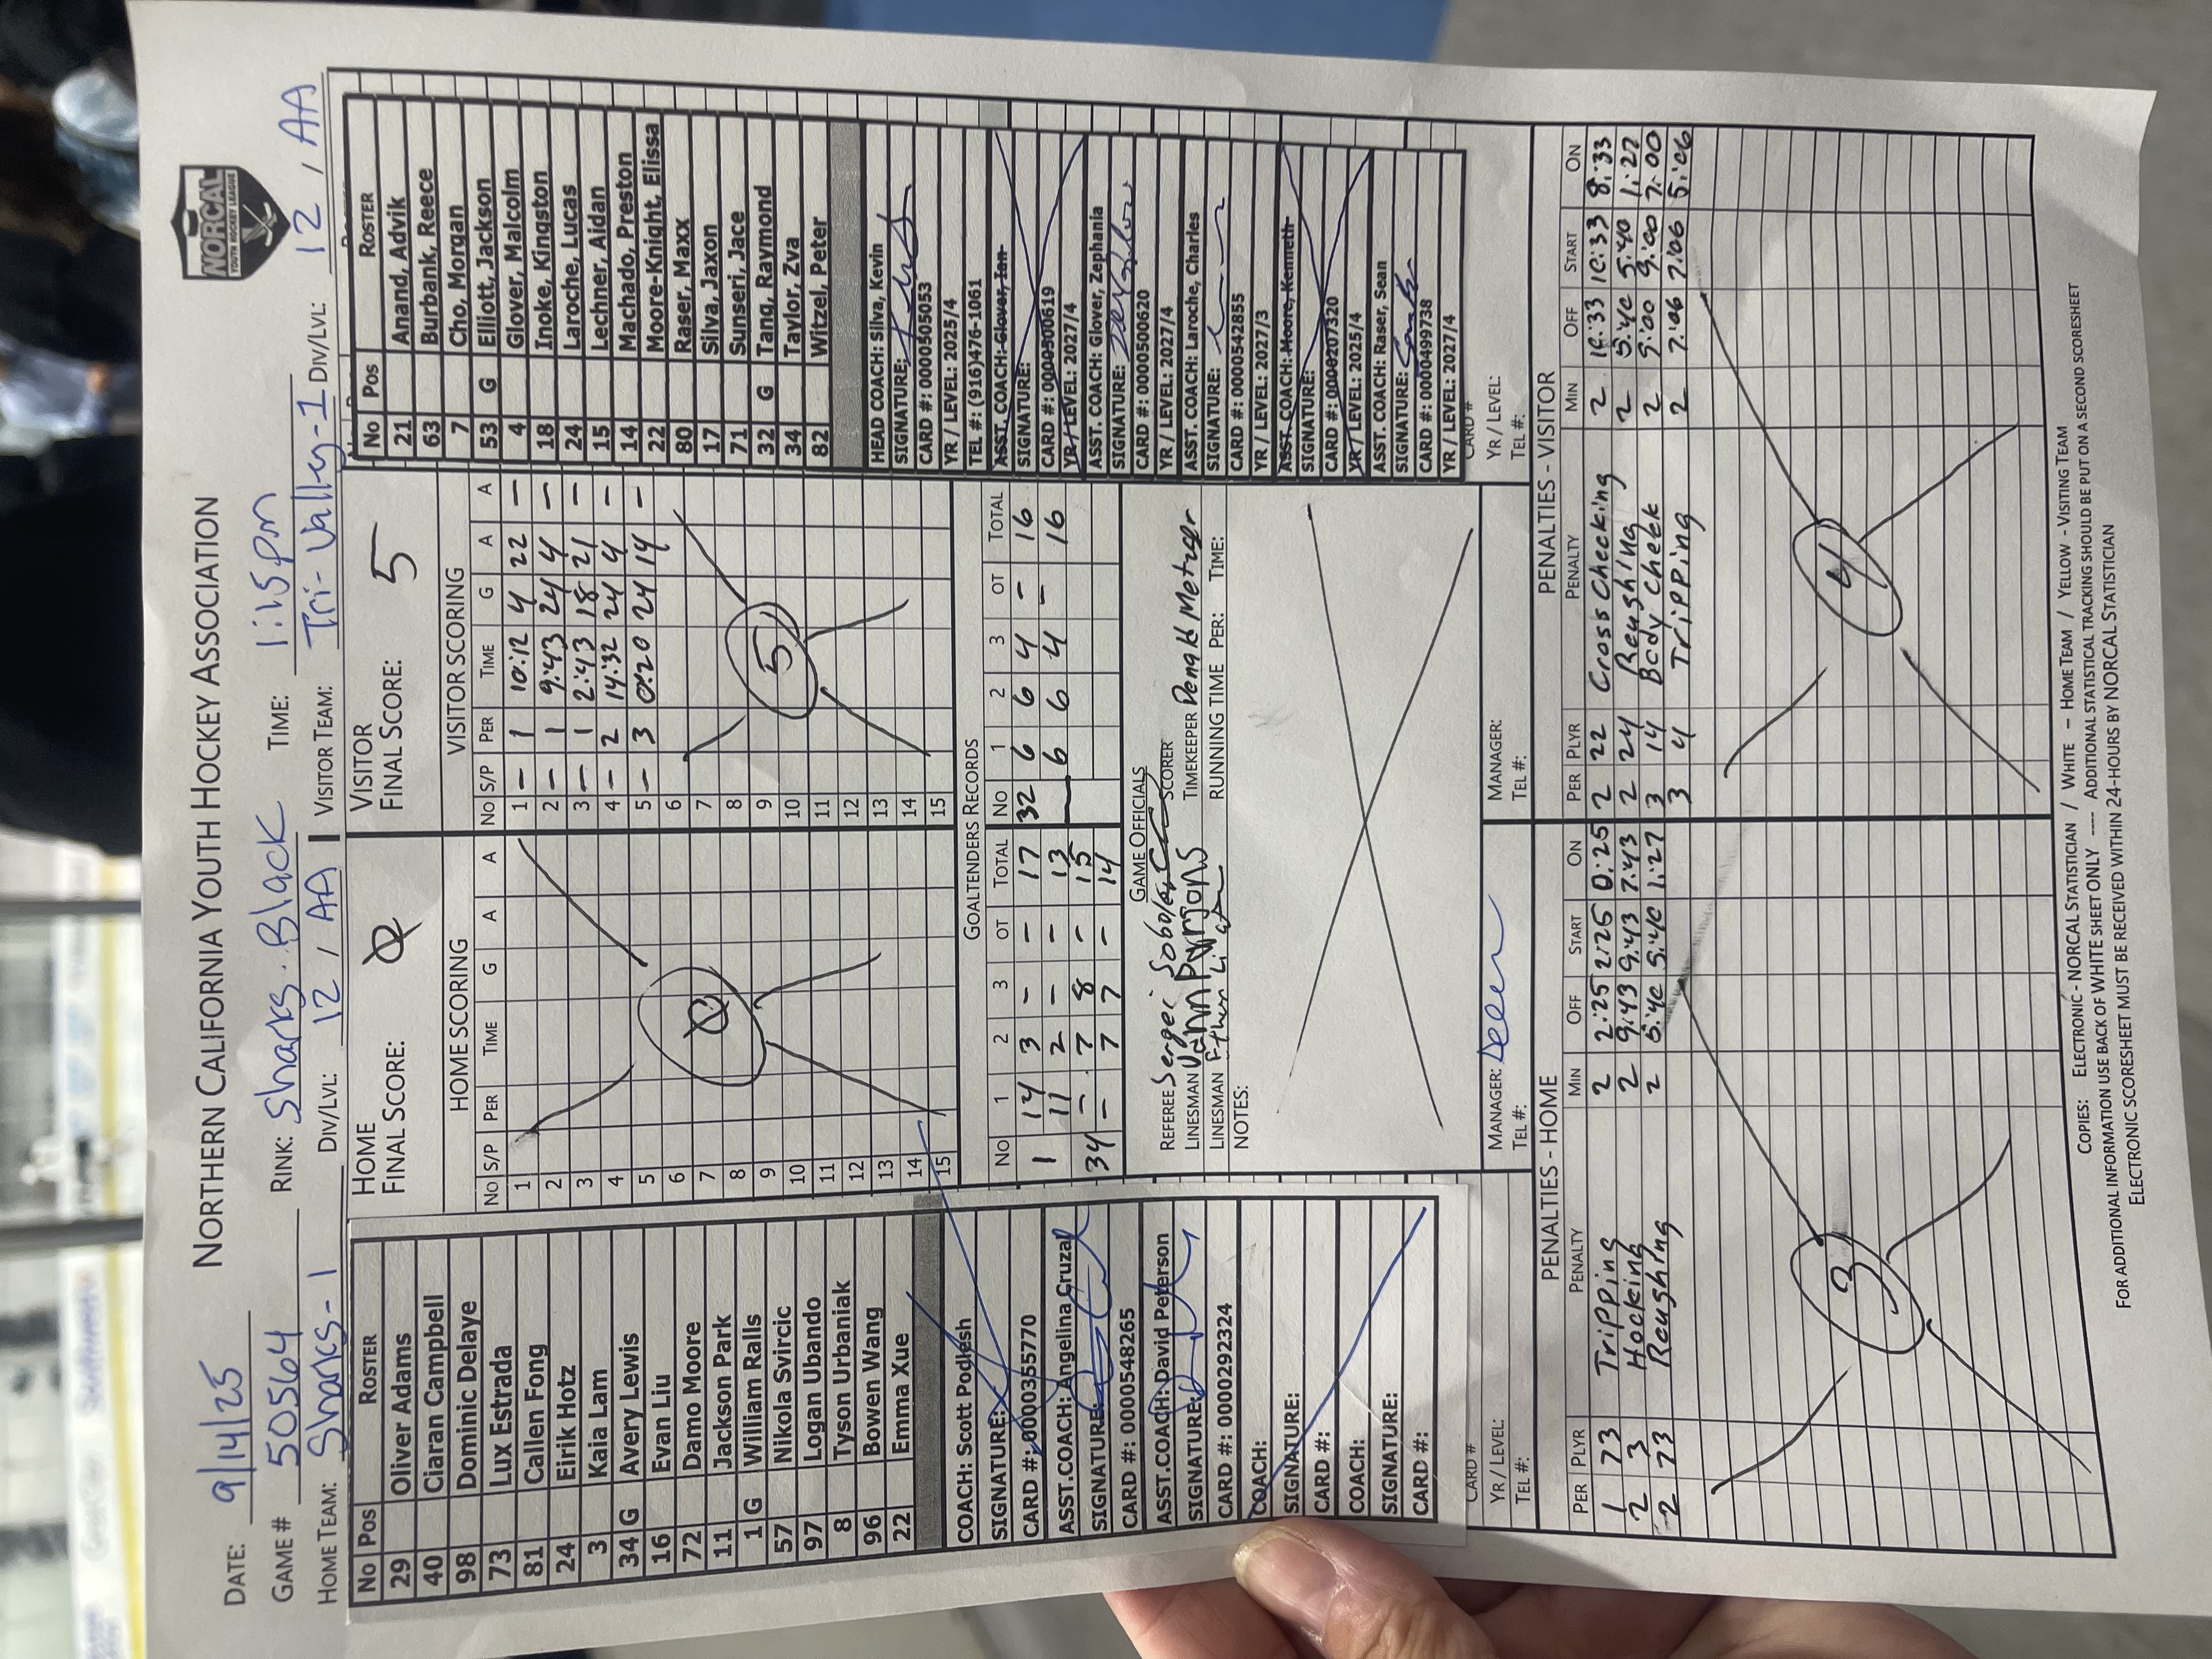 NORTHERN CALIFORNIA YOUTH HOCKEY ASSOCIATION
NORCAL
YOUTH HOCKEY LEAGUE
DATE: 9/14/25
GAME # 50564 RINK: Sharks. Black TIME: 1:15pm
HOME TEAM: Sharks-1 DIV/LVL: 12 / AA VISITOR TEAM: Tri-Valley-1 DIV/LVL: 12 / AA
No Pos ROSTER
29 Oliver Adams
40 Ciaran Campbell
98 Dominic Delaye
73 Lux Estrada
81 Callen Fong
24 Eirik Hotz
3 Kaia Lam
34 G Avery Lewis
16 Evan Liu
72 Damo Moore
11 Jackson Park
1 G William Ralls
57 Nikola Svircic
97 Logan Ubando
8 Tyson Urbaniak
96 Bowen Wang
22 Emma Xue
COACH: Scott Podlesh
SIGNATURE:
CARD #: 0000355770
ASST.COACH: Angelina Cruzal
SIGNATURE:
CARD #: 0000548265
ASST.COACH: David Peterson
SIGNATURE:
CARD #: 0000292324
COACH:
SIGNATURE:
CARD #:
COACH:
SIGNATURE:
CARD #:
CARD #
YR / LEVEL:
TEL #:
HOME
FINAL SCORE: 0
HOME SCORING
NO S/P PER TIME G A A
1
2
3
4
5
6
7
8
9
10
11
12
13
14
15
0
VISITOR
FINAL SCORE: 5
VISITOR SCORING
NO S/P PER TIME G A A
1 – 1 10:12 4 22 –
2 – 1 9:43 24 4 –
3 – 1 2:43 18 21 –
4 – 2 14:32 24 4 –
5 – 3 0:20 24 14 –
6
7
8
9
10
11
12
13
14
15
5
GOALTENDERS RECORDS
NO 1 2 3 OT TOTAL NO 1 2 3 OT TOTAL
1 14 3 – – 17 32 6 6 4 – 16
11 2 – – 13 6 6 4 – 16
34 – 7 8 – 15
– 7 7 – 14
GAME OFFICIALS
REFEREE Sergei SCORER
LINESMAN TIMEKEEPER
LINESMAN RUNNING TIME PER: TIME:
NOTES:
MANAGER:
TEL #:
MANAGER:
TEL #:
No Pos ROSTER
21 Anand, Advik
63 Burbank, Reece
7 Cho, Morgan
53 G Elliott, Jackson
4 Glover, Malcolm
18 Inoke, Kingston
24 Laroche, Lucas
15 Lechner, Aidan
14 Machado, Preston
22 Moore-Knight, Elissa
80 Raser, Maxx
17 Silva, Jaxon
71 Sunseri, Jace
32 G Tang, Raymond
34 Taylor, Zva
82 Witzel, Peter
HEAD COACH: Silva, Kevin
SIGNATURE:
CARD #: 0000505053
YR / LEVEL: 2025/4
TEL #: (916)476-1061
ASST. COACH: Glover, Ian
SIGNATURE:
CARD #: 0000500619
YR / LEVEL: 2027/4
ASST. COACH: Glover, Zephania
SIGNATURE:
CARD #: 0000500620
YR / LEVEL: 2027/4
ASST. COACH: Laroche, Charles
SIGNATURE:
CARD #: 0000542855
YR / LEVEL: 2027/3
ASST. COACH: Moore, Kenneth
SIGNATURE:
CARD #: 0000207320
YR / LEVEL: 2025/4
ASST. COACH: Raser, Sean
SIGNATURE:
CARD #: 0000499738
YR / LEVEL: 2027/4
CARD #
YR / LEVEL:
TEL #:
PENALTIES - HOME
PER PLYR PENALTY MIN OFF START ON
1 73 Tripping 2 2:25 2:25 0:25
2 3 Hocking 2 9:43 9:43 7:43
2 73 Roughing 2 5:40 5:40 1:27
3
PENALTIES - VISITOR
PER PLYR PENALTY MIN OFF START ON
2 22 Cross Checking 2 10:33 10:33 8:33
2 24 Roughing 2 5:40 5:40 1:27
3 14 Body check 2 9:00 9:00 7:00
3 4 Tripping 2 7:06 7:06 5:06
4
COPIES: ELECTRONIC - NORCAL STATISTICIAN / WHITE – HOME TEAM / YELLOW - VISITING TEAM
FOR ADDITIONAL INFORMATION USE BACK OF WHITE SHEET ONLY ---- ADDITIONAL STATISTICAL TRACKING SHOULD BE PUT ON A SECOND SCORESHEET
ELECTRONIC SCORESHEET MUST BE RECEIVED WITHIN 24-HOURS BY NORCAL STATISTICIAN